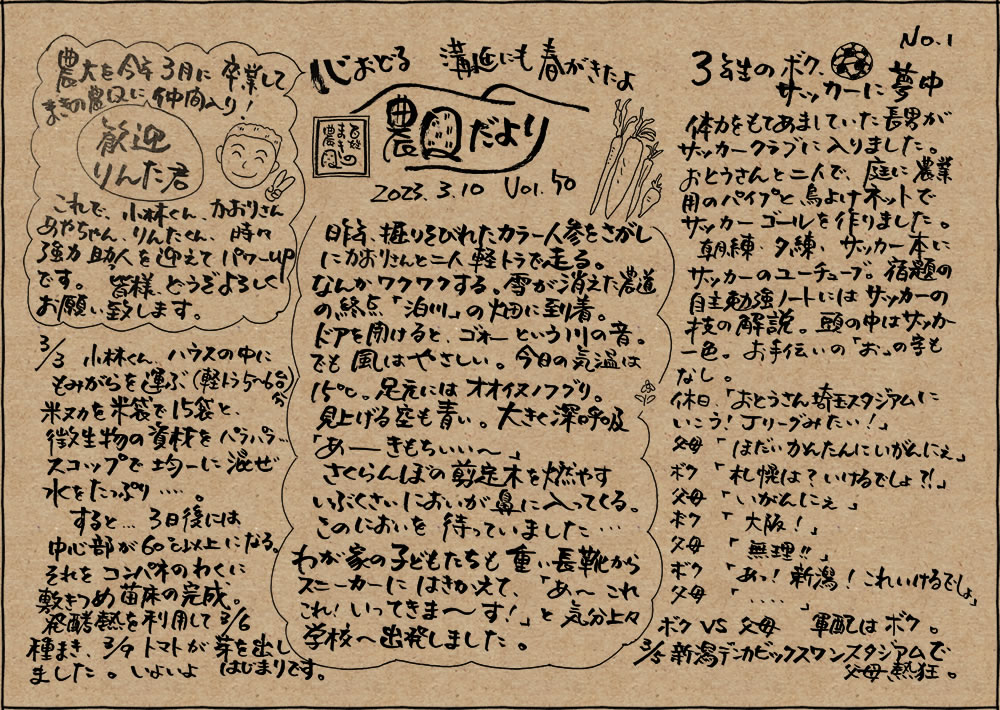 No.1
心おどる 溝延にも春がきたよ
百姓
まきの
農园
農园だより
2023.3.10 Vol.50
3年生のボク、
サッカーに夢中
体力をもてあましていた長男が
サッカークラブに入りました。
おとうさんと二人で、庭に農業
用のパイプと鳥よけネットで
サッカーゴールを作りました。
朝練、夕練、サッカー本に
サッカーのユーチューブ。宿題の
自主勉強ノートにはサッカーの
技の解説。頭の中はサッカー
一色。お手伝いの「お」の字も
なし。
休日、「おとうさん埼玉スタジアムに
いこう!Jリーグみたい!」
父母「ほだいかんたんにいがんにぇ」
ボク「札幌は?いけるでしょ?!」
父母「いがんにぇ」
ボク「大阪!」
父母「無理!!」
ボク「あっ!新潟!これいけるでしょ」
父母「.....」
ボク VS 父母 軍配はボク。
3/5 新潟デンカビックスワンスタジアムで
父母熱狂。
昨年、掘りそびれたカラー人参をさがし
にかおりさんと二人軽トラで走る。
なんかワクワクする。雪が消えた農道
の終点「泊川」の畑に到着。
ドアを開けると、ゴォーという川の音。
でも風はやさしい。今日の気温は
15℃。足元にはオオイヌノフグリ。
見上げる空も青い。大きく深呼吸
「あーーきもちいい~」
さくらんぼの剪定木を燃やす
いぶくさいにおいが鼻に入ってくる。
このにおいを待っていました…
わが家の子どもたちも重い長靴から
スニーカーにはきかえて、「あ~これ
これ!いってきま~す!」と気分上々
学校へ出発しました。
農大を今年3月に卒業して
まきの農园に仲間入り!
歓迎
りんた君
これで、小林くん、かおりさん
めやちゃん、りんたくん、時々
強力助人を迎えてパワーUP
です。皆様、どうぞよろしく
お願い致します。
3/3 小林くん、ハウスの中に
もみがらを運ぶ(軽トラ5~6台分)
米ヌカを米袋で15袋と、
微生物の資材をパラパラ…
スコップで均一に混ぜ
水をたっぷり…。
すると…3日後には
中心部が60℃以上になる。
それをコンパネのわくに
敷きつめ苗床の完成。
発酵熱を利用して3/6
種まき、3/9トマトが芽を出し
ました。いよいよ はじまりです。